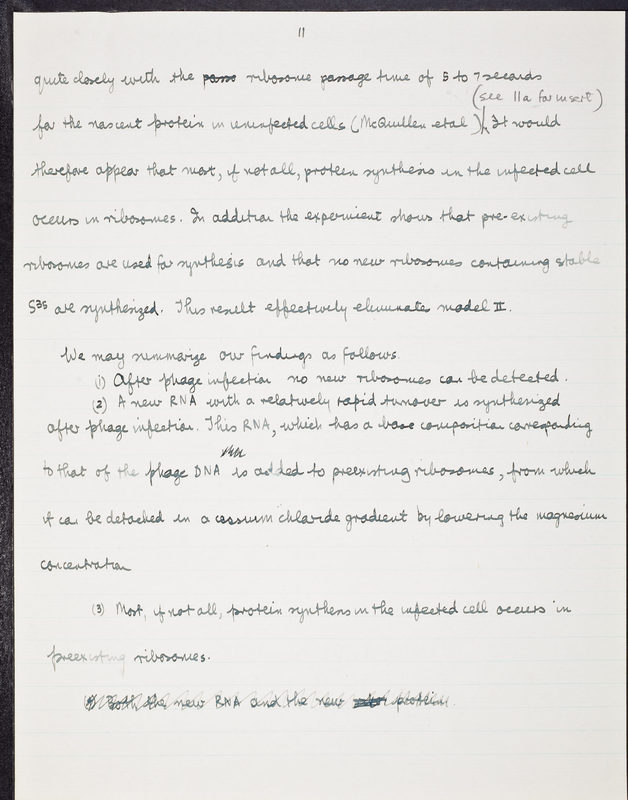 11
quite closely with the pass ribosome passage time of 5 to 7 seconds
(see 11a for insert)
for the nascent protein in uninfected cells (McQuillen et al). It would
therefore appear that most, if not all, protein synthesis in the infected cell
occurs in ribosomes. In addition the experiment shows that pre-existing
ribosomes are used for synthesis and that no new ribosomes containing stable
S35 are synthesized. This result effectively eliminates model II.
We may summarize our findings as follows.
(1) After phage infection no new ribosomes can be detected.
(2) A new RNA with a relatively rapid turnover is synthesized
after phage infection. This RNA, which has a base composition corresponding
to that of the phage DNA is added to preexisting ribosomes, from which
it can be detached in a cesium chloride gradient by lowering the magnesium
concentration
(3) Most, if not all, protein synthesis in the infected cell occurs in
preexisting ribosomes.
Both the new RNA and the new protein.